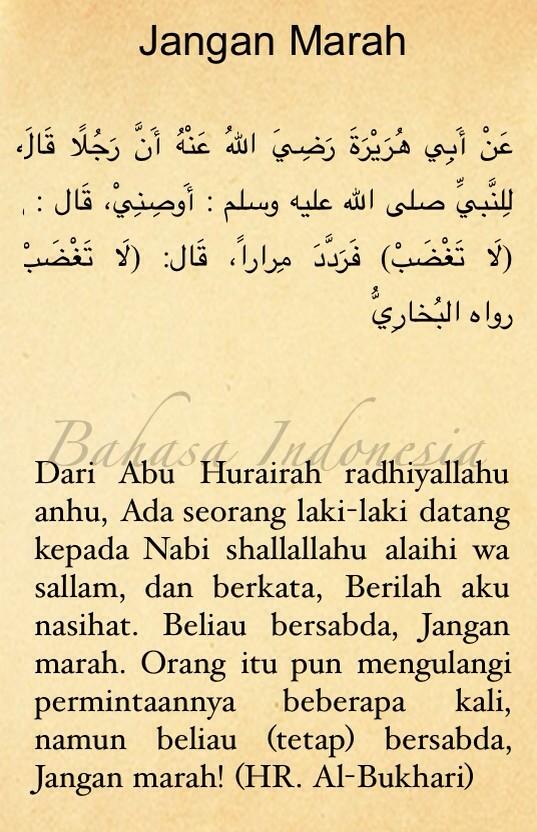 Jangan Marah
عَنْ أَبِي هُرَيْرَةَ رَضِيَ اللهُ عَنْهُ أَنَّ رَجُلًا قَالَ،
لِلنَّبيِّ صلى الله عليه وسلم : أَوصِنِيْ، قَال :
(لَا تَغْضَبْ) فَرَدَّدَ مِراراً، قَال: (لَا تَغْضَبْ
رواه البُخارِيُّ
Bahasa Indonesia
Dari Abu Hurairah radhiyallahu
anhu, Ada seorang laki-laki datang
kepada Nabi shallallahu alaihi wa
sallam, dan berkata, Berilah aku
nasihat. Beliau bersabda, Jangan
marah. Orang itu pun mengulangi
permintaannya beberapa kali,
namun beliau (tetap) bersabda,
Jangan marah! (HR. Al-Bukhari)